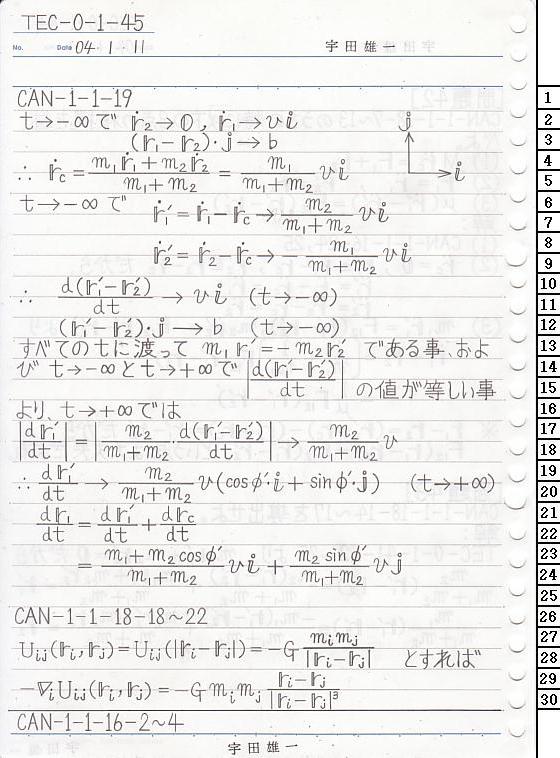 TEC-0-1-45
No. Date 04・1・11 宇田雄一
CAN-1-1-19
t→-∞で ṙ₂→0, ṙ₁→υi
(r₁-r₂)・j→b
∴ ṙc = (m₁ṙ₁+m₂ṙ₂)/(m₁+m₂) = m₁/(m₁+m₂) υi
j
i
t→-∞で ṙ₁′=ṙ₁-ṙc→ m₂/(m₁+m₂) υi
ṙ₂′=ṙ₂-ṙc→ - m₁/(m₁+m₂) υi
∴ d(r₁′-r₂′)/dt → υi (t→-∞)
(r₁′-r₂′)・j→b (t→-∞)
すべてのtに渡って m₁r₁′=-m₂r₂′ である事、およ
び t→-∞とt→+∞で |d(r₁′-r₂′)/dt| の値が等しい事
より、t→+∞では
|dr₁′/dt| = |m₂/(m₁+m₂)・d(r₁′-r₂′)/dt| → m₂/(m₁+m₂) υ
∴ dr₁′/dt → m₂/(m₁+m₂) υ(cosφ′・i+sinφ′・j) (t→+∞)
dr₁/dt = dr₁′/dt + drc/dt
= (m₁+m₂cosφ′)/(m₁+m₂) υi + m₂sinφ′/(m₁+m₂) υj
CAN-1-1-18-18~22
Uij(ri,rj)=Uij(|ri-rj|)=-G mimj/|ri-rj| とすれば
-∇iUij(ri,rj)=-Gmimj (ri-rj)/|ri-rj|³
CAN-1-1-16-2~4
宇田雄一
1
2
3
4
5
6
7
8
9
10
11
12
13
14
15
16
17
18
19
20
21
22
23
24
25
26
27
28
29
30